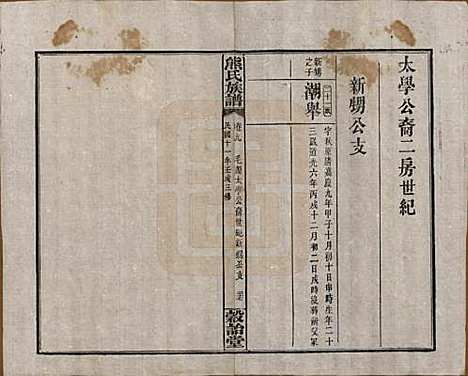 太學公裔二房世紀
新甥公支
新甥之子
二十一氏
潮舉
字秋原清嘉慶九年甲子十月初十日申時生年二十
三歿道光六年丙戌十二月初二日戌時後葬前父
熊氏族譜
卷九
太學公裔世紀
民國十一年壬戌三修
穀詒堂